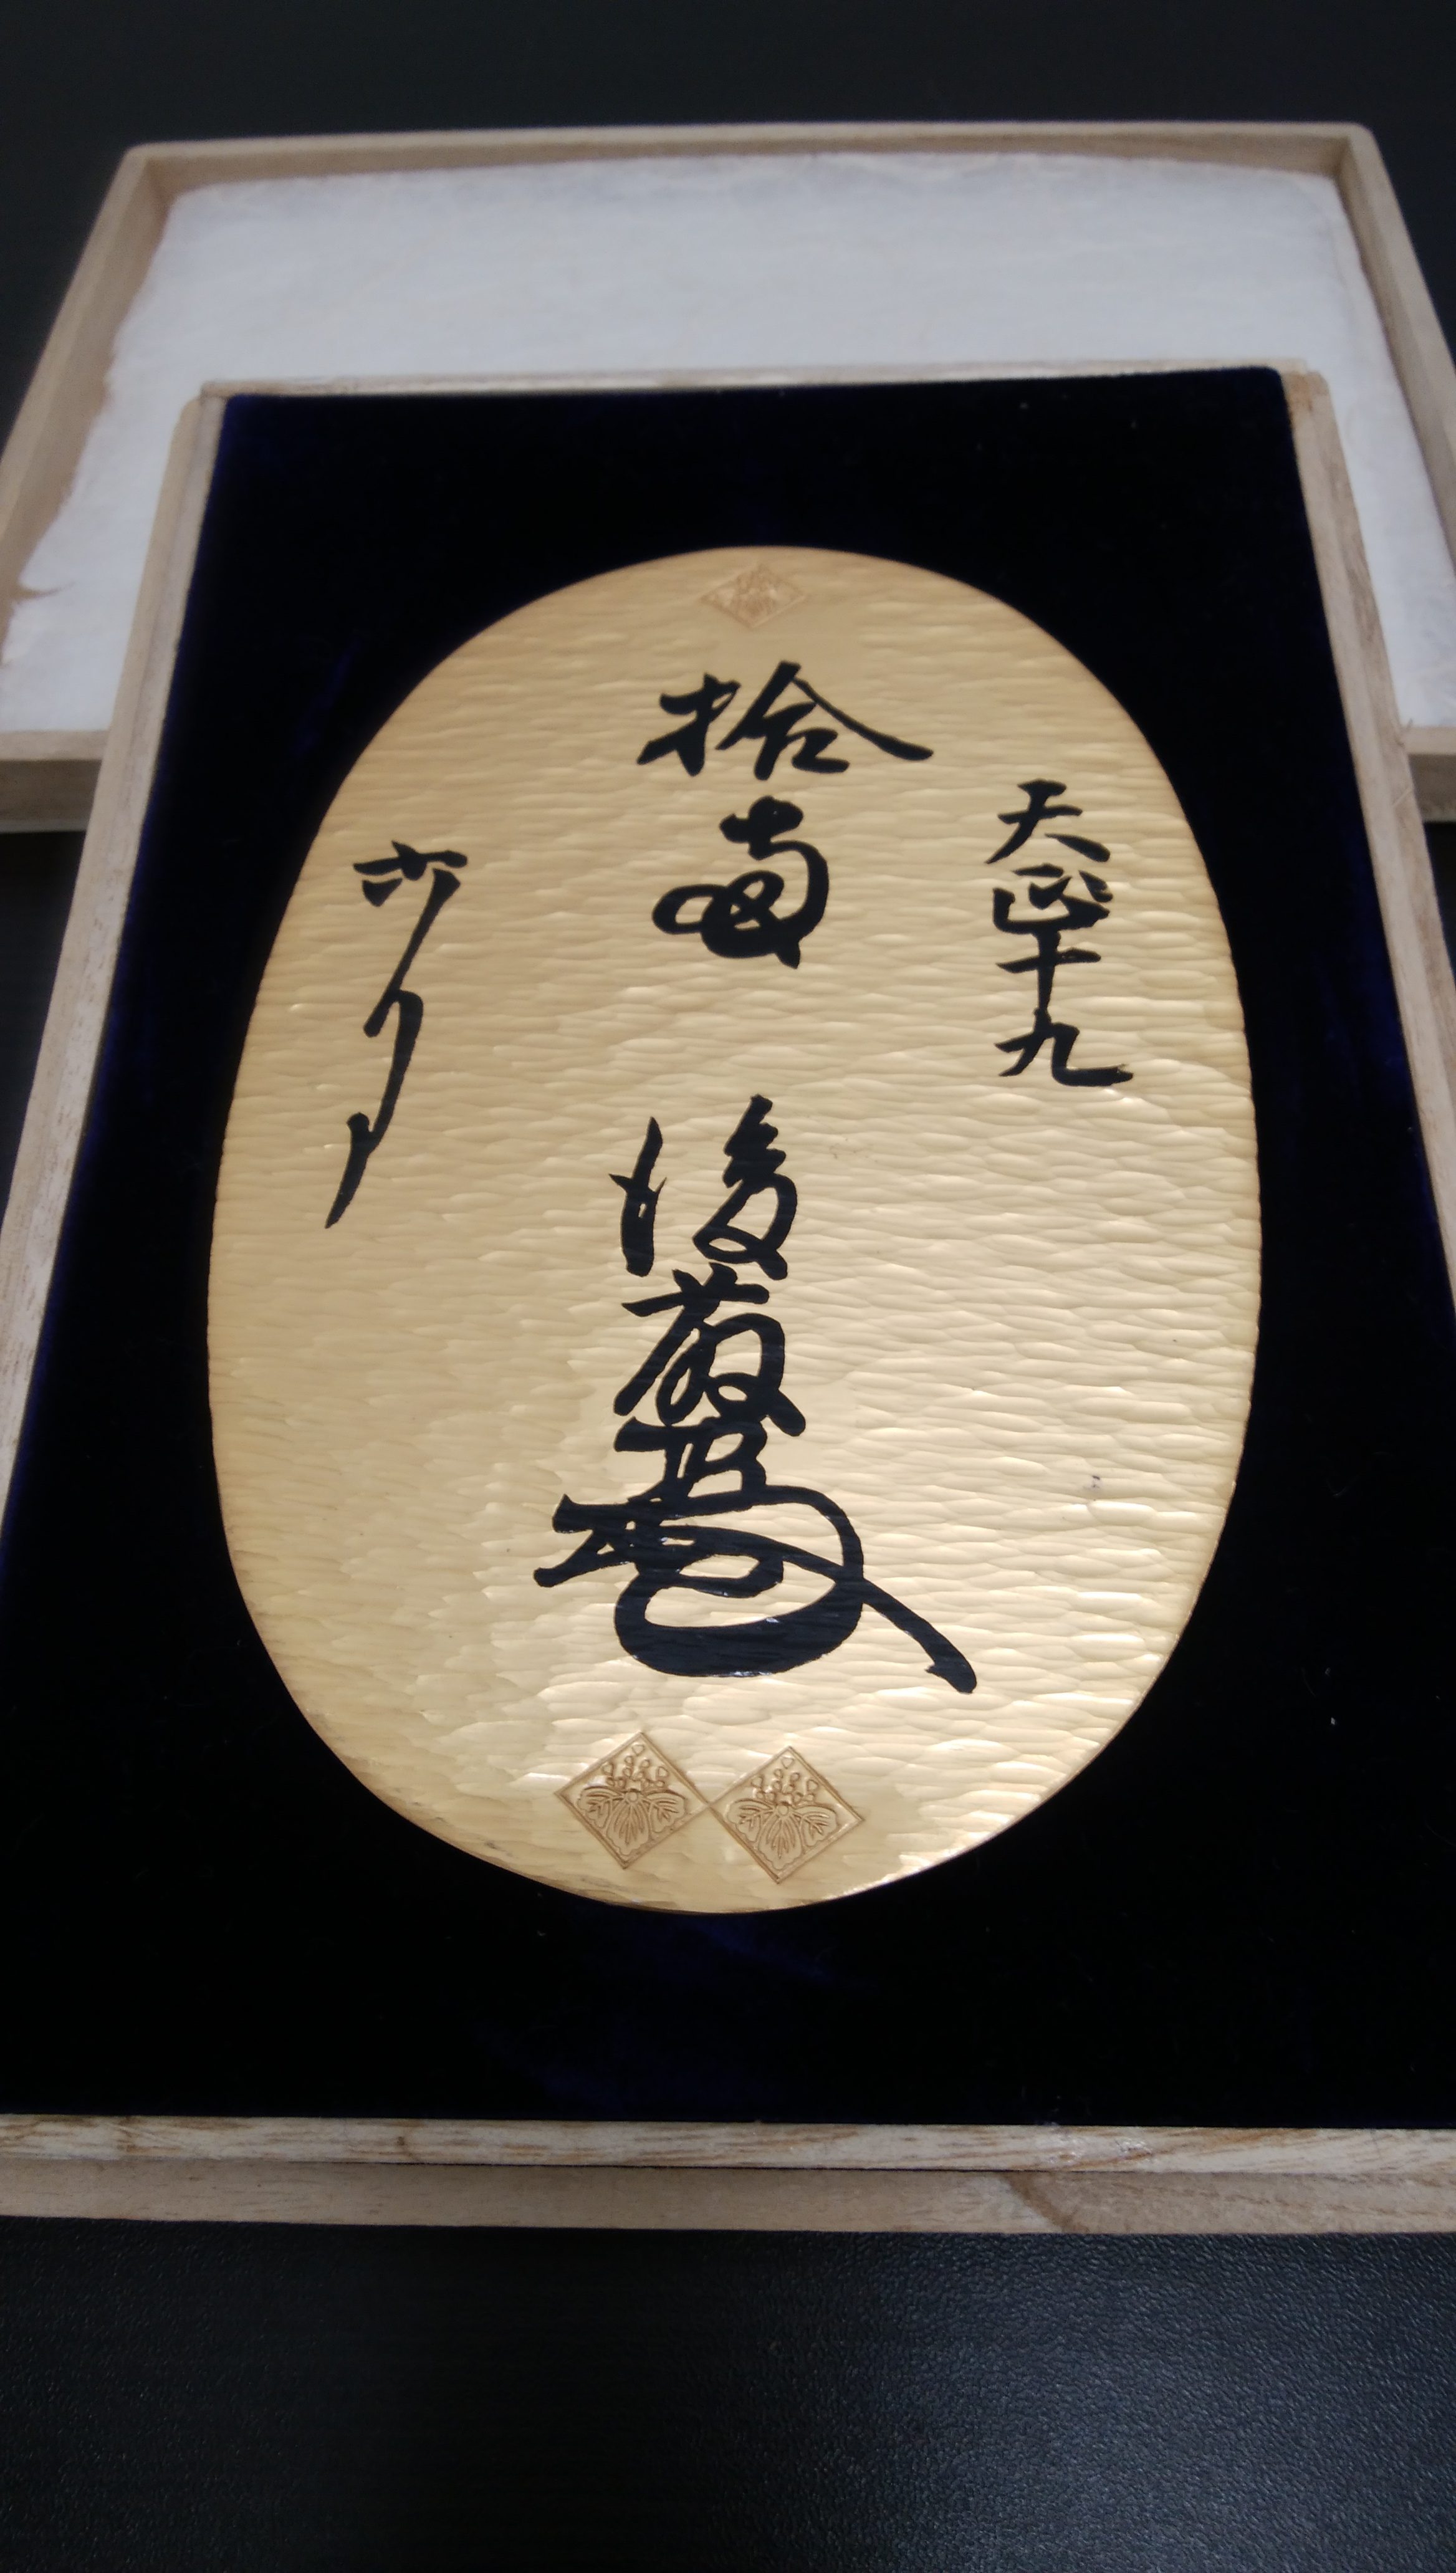 天正十九
拾両 後藤
六月